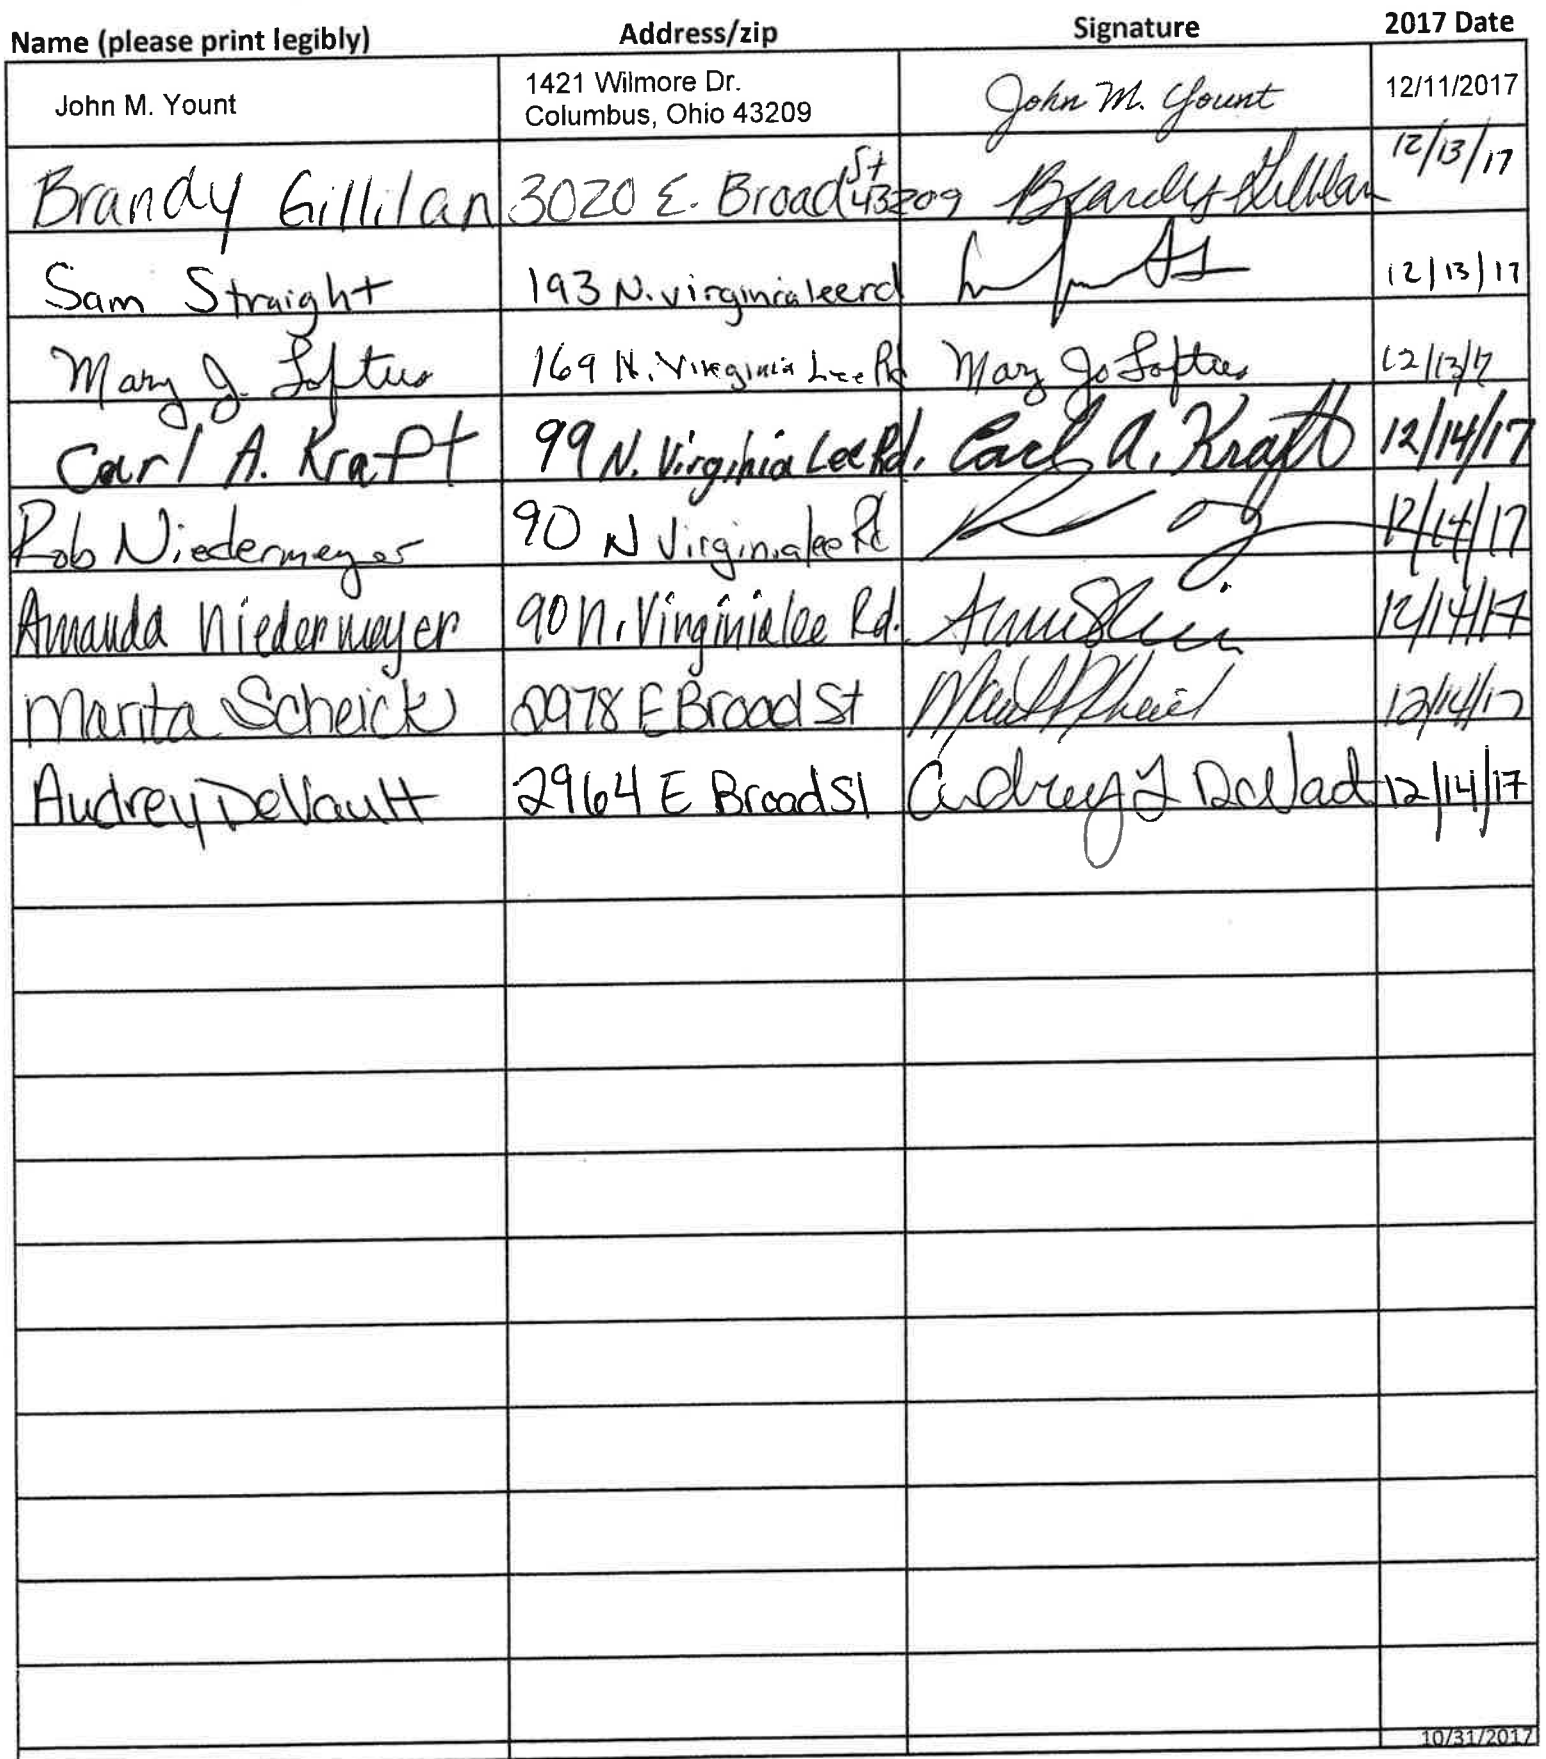 Name (please print legibly) Address/zip Signature 2017 Date
John M. Yount 1421 Wilmore Dr. Columbus, Ohio 43209 John M. Yount 12/11/2017
Brandy Gillilan 3020 E. Broad St 43209 Brandy Gillilan 12/13/17
Sam Straight 193 N. virginialeerd 12/13/17
Mary J. Loftus 169 N. Virginia Lee Rd Mary Jo Loftus 12/13/17
Carl A. Kraft 99 N. Virginia Lee Rd. Carl A. Kraft 12/14/17
Rob Niedermeyer 90 N Virginialee Rd 12/14/17
Amanda Niedermeyer 90 N. Virginialee Rd. 12/14/17
Marita Scheick 2978 E Broad St 12/14/17
Audrey DeVault 2964 E Broad St Audrey L DeVault 12/14/17
10/31/2017